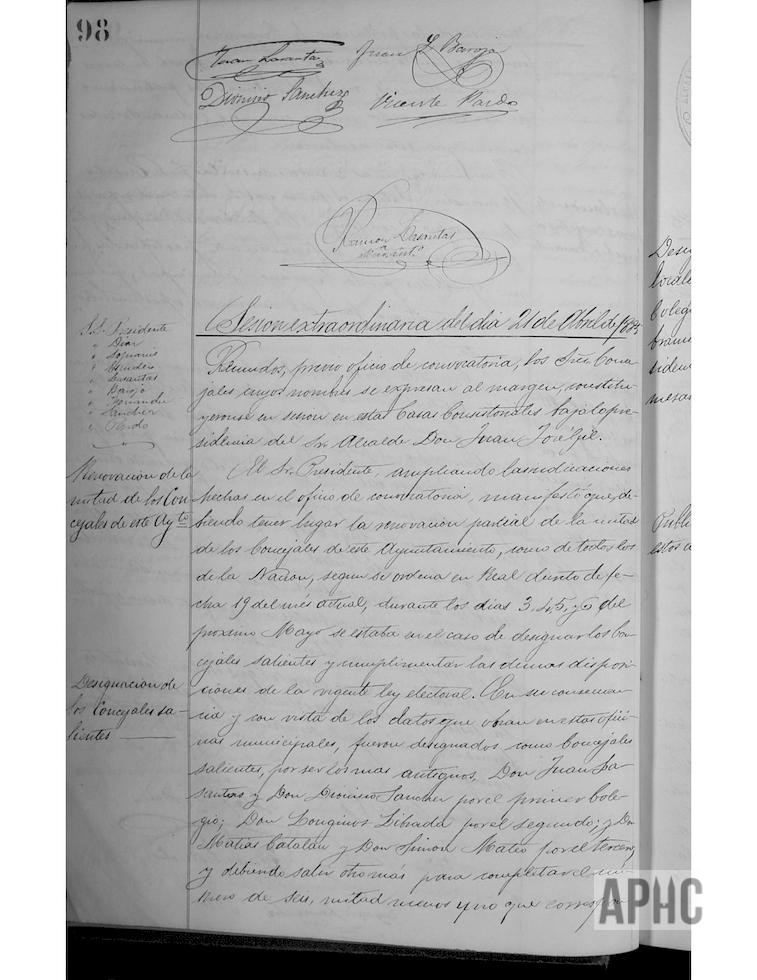 98
Juan Lasanta
Juan L Baroja
Dionisio Sanchez
Vicente Pardo
Ramon Lasantas
Sesion extraordinaria del dia 21 de Abril de 1885
S.S. Presidente
" Diaz
"
" Escudero
" Lasantas
" Baroja
"
" Sanchez
" Pardo
Reunidos, previo oficio de convocatoria, los Sres. Conce-
jales cuyos nombres se expresan al margen, constitu-
yeronse en sesion en estas Casas Consistoriales bajo la pre-
sidencia del Sr. Alcalde Don Juan José Gil.
Renovacion de la
mitad de los Con-
cejales de este Aytº
El Sr. Presidente, ampliando las indicaciones
hechas en el oficio de convocatoria, manifestó que, de-
biendo tener lugar la renovacion parcial de la mitad
de los Concejales de este Ayuntamiento, como de todos los
de la Nacion, segun se ordena en Real decreto de fe-
cha 19 del mes actual, durante los dias 3, 4, 5, y 6 del
proximo Mayo se estaba en el caso de designar los Con-
cejales salientes y cumplimentar las demas disposi-
ciones de la vigente ley electoral. En su consecuen-
Designacion de
los Concejales sa-
lientes
cia y con vista de los datos que obran en estas ofici-
nas municipales, fueron designados como Concejales
salientes, por ser los mas antiguos, Don Juan La-
santas y Don Dionisio Sanchez por el primer Cole-
gio; Don Longinos Librada por el segundo; y Don
Matias Catalan y Don Simon Mateo por el tercero,
y debiendo salir otro más para completar el nú-
mero de seis, mitad menos uno que correspon-
Desig
locale
Coleg
siden
mesas
Publi
estos c
APHC